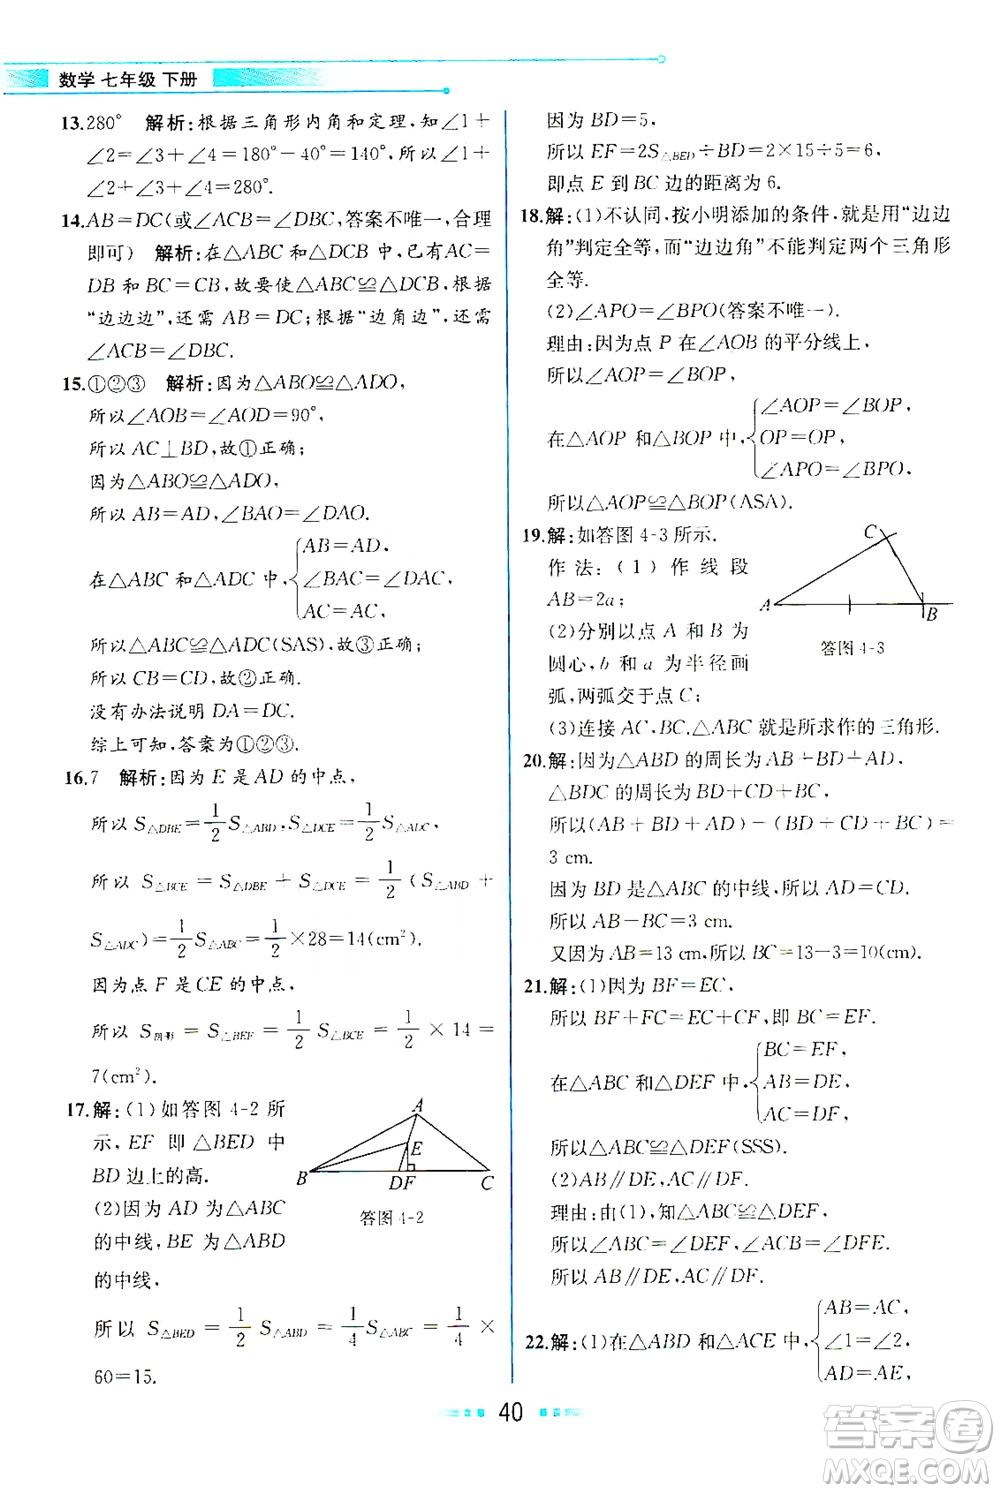 数学 七年级 下册
13.280° 解析:根据三角形内角和定理,知∠1+
∠2=∠3+∠4=180°-40°=140°,所以∠1+
∠2+∠3+∠4=280°.
14.AB=DC(或∠ACB=∠DBC,答案不唯一,合理
即可) 解析:在△ABC和△DCB中,已有AC=
DB和BC=CB,故要使△ABC≌△DCB,根据
“边边边”,还需AB=DC;根据“边角边”,还需
∠ACB=∠DBC.
15.①②③ 解析:因为△ABO≌△ADO,
所以∠AOB=∠AOD=90°,
所以AC⊥BD,故①正确;
因为△ABO≌△ADO,
所以AB=AD,∠BAO=∠DAO.
在△ABC和△ADC中,{AB=AD,
∠BAC=∠DAC,
AC=AC,
所以△ABC≌△ADC(SAS),故③正确;
所以CB=CD,故②正确;
没有办法说明DA=DC.
综上可知,答案为①②③.
16.7 解析:因为E是AD的中点,
所以S△DBE=1/2 S△ABD,S△DCE=1/2 S△ADC,
所以 S△BCE = S△DBE + S△DCE = 1/2 (S△ABD +
S△ADC)=1/2 S△ABC=1/2×28=14(cm²).
因为点F是CE的中点,
所以 S阴影=S△BEF = 1/2 S△BCE = 1/2 × 14 =
7(cm²).
17.解:(1)如答图4-2所
示,EF 即△BED 中
BD边上的高.
(2)因为 AD 为△ABC
的中线,BE 为△ABD
的中线,
所以 S△BED = 1/2 S△ABD = 1/4 S△ABC = 1/4 ×
60=15.
A
E
B
DF
C
答图4-2
因为BD=5,
所以EF=2S△BED÷BD=2×15÷5=6,
即点E到BC边的距离为6.
18.解:(1)不认同,按小明添加的条件,就是用“边边
角”判定全等,而“边边角”不能判定两个三角形
全等.
(2)∠APO=∠BPO(答案不唯一).
理由:因为点P在∠AOB的平分线上,
所以∠AOP=∠BOP,
在△AOP和△BOP中,{∠AOP=∠BOP,
OP=OP,
∠APO=∠BPO,
所以△AOP≌△BOP(ASA).
19.解:如答图4-3所示.
作法:(1)作线段
AB=2a;
(2)分别以点A和B为
圆心,b和a为半径画
弧,两弧交于点C;
(3)连接AC,BC,△ABC就是所求作的三角形.
C
A
B
答图4-3
20.解:因为△ABD的周长为AB+BD+AD,
△BDC的周长为BD+CD+BC,
所以(AB+BD+AD)-(BD+CD+BC)=
3 cm.
因为BD是△ABC的中线,所以AD=CD.
所以AB-BC=3 cm.
又因为AB=13 cm,所以BC=13-3=10(cm).
21.解:(1)因为BF=EC,
所以BF+FC=EC+CF,即BC=EF.
在△ABC和△DEF中,{BC=EF,
AB=DE,
AC=DF,
所以△ABC≌△DEF(SSS).
(2)AB∥DE,AC∥DF.
理由:由(1),知△ABC≌△DEF,
所以∠ABC=∠DEF,∠ACB=∠DFE.
所以AB∥DE,AC∥DF.
22.解:(1)在△ABD和△ACE中,{AB=AC,
∠1=∠2,
AD=AE,
40
答案卷
MXQE.COM